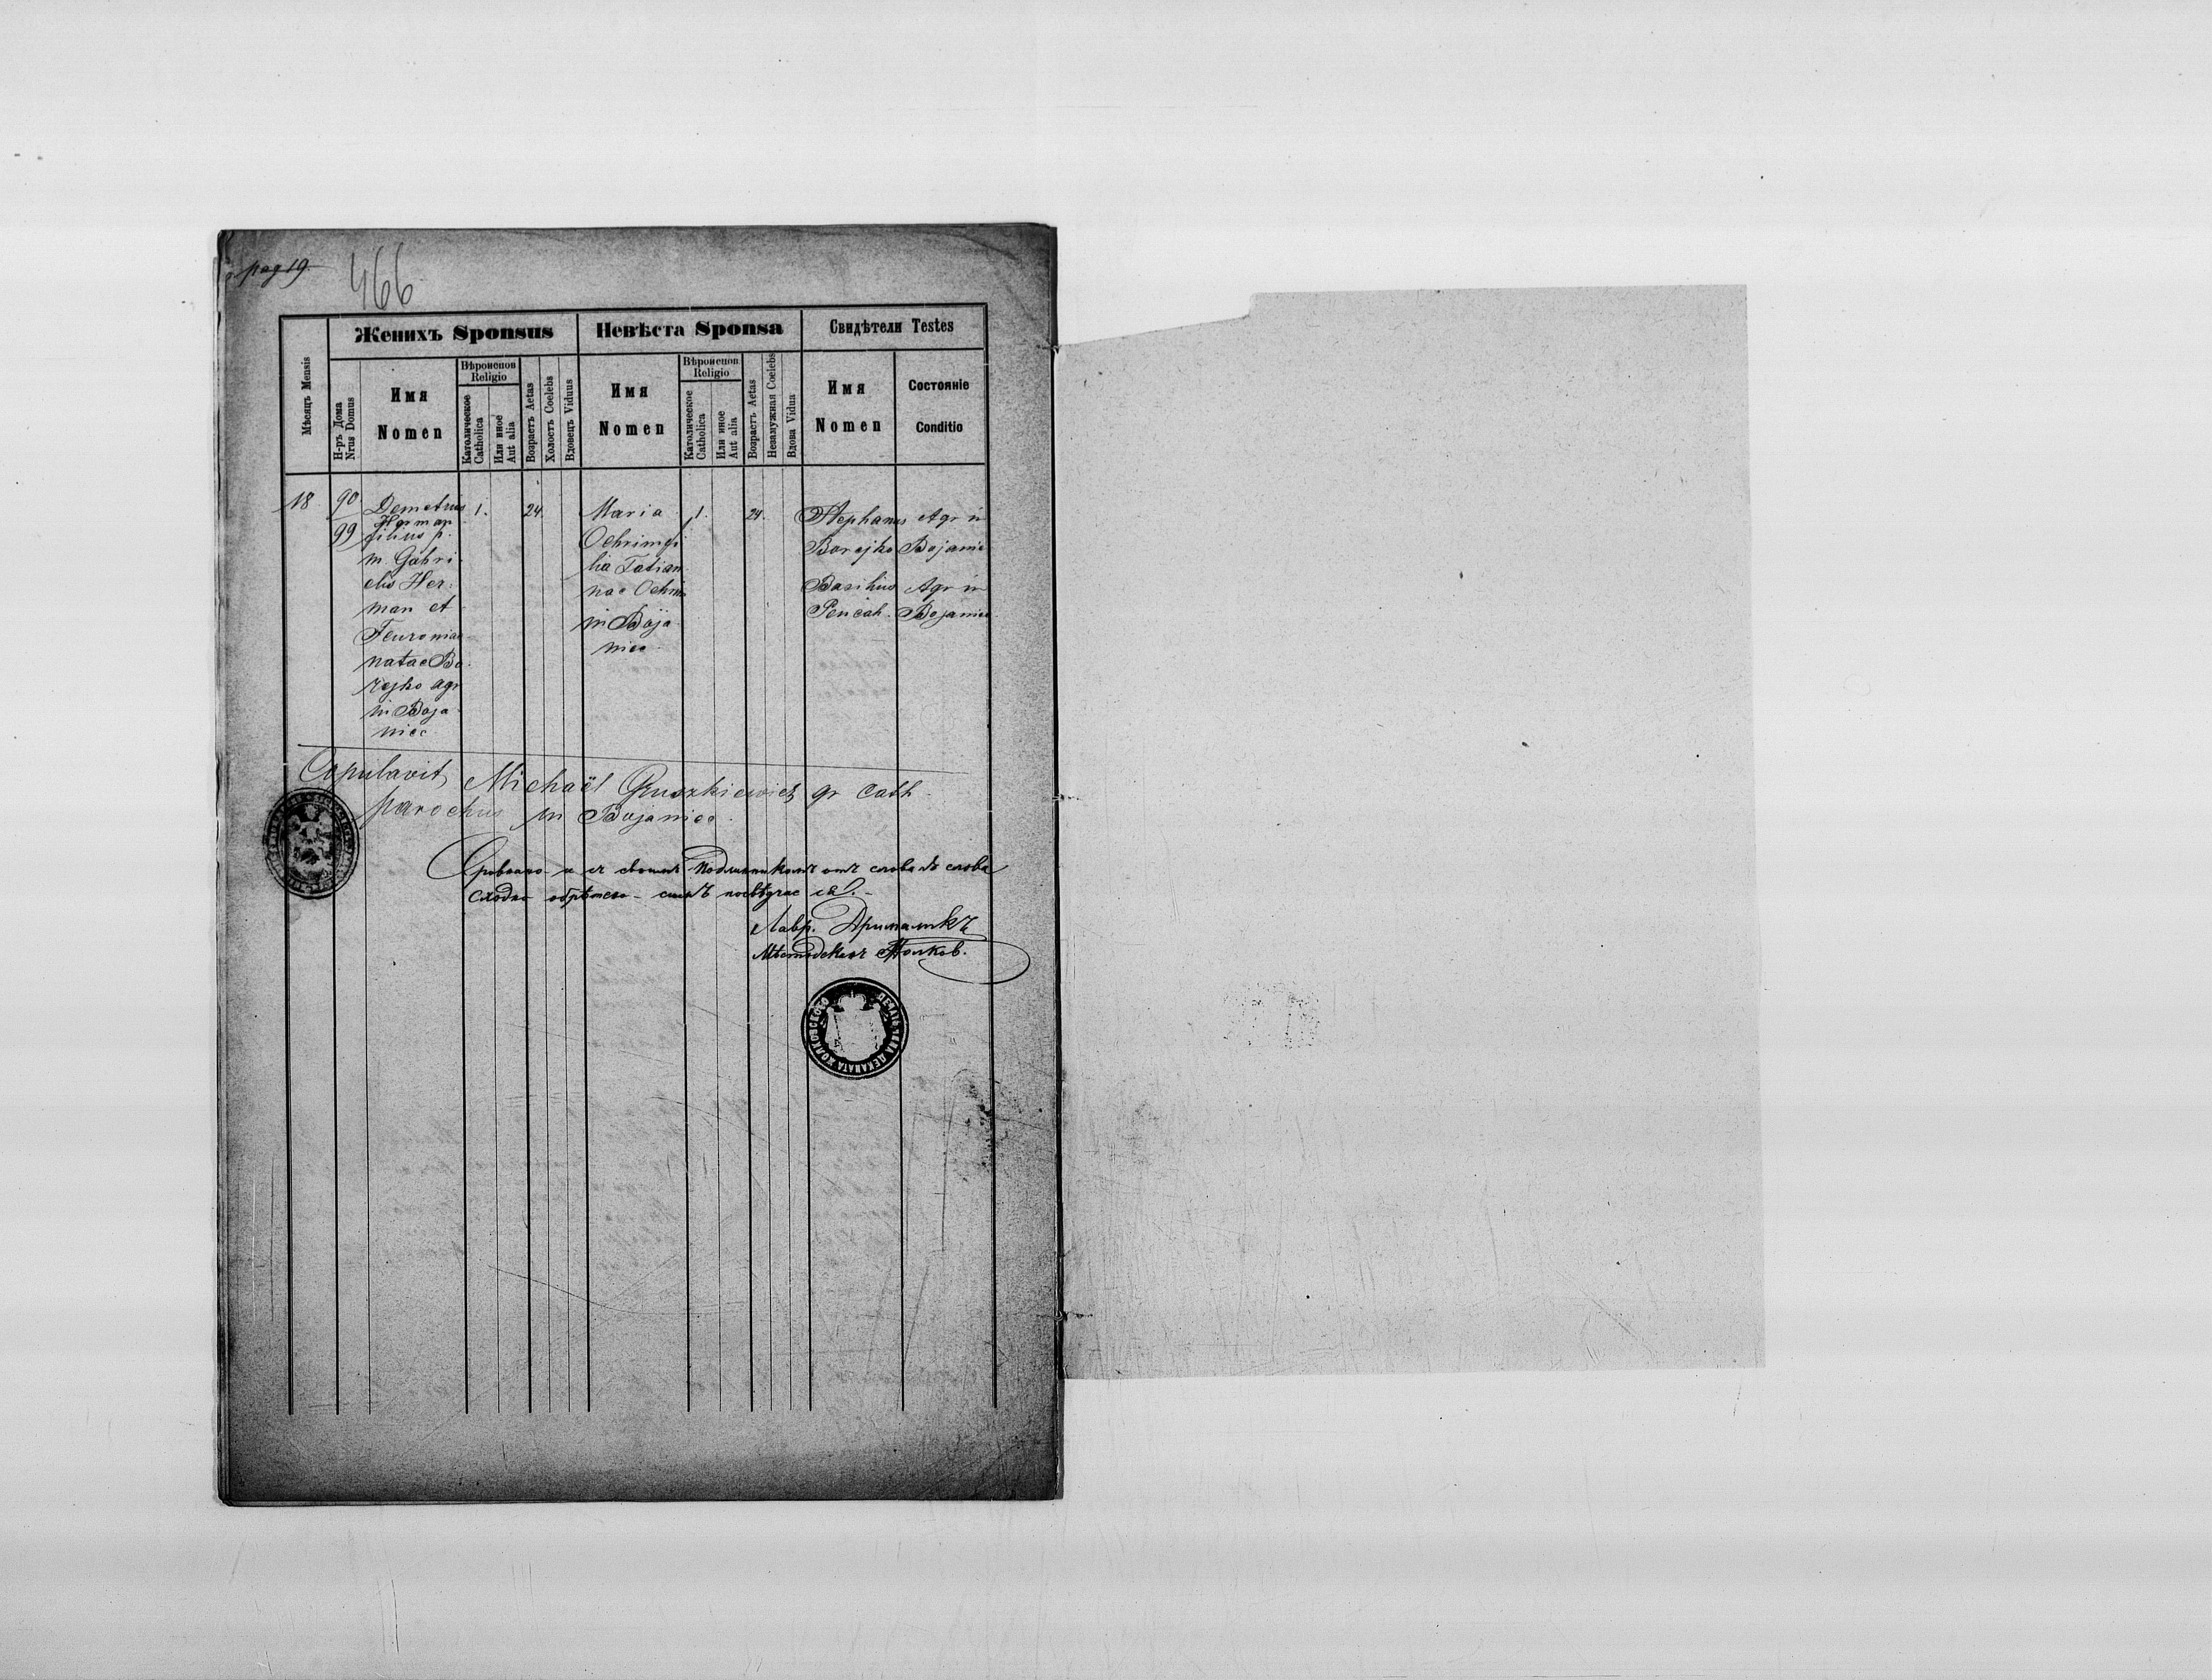 pag 19
466
Женихъ Sponsus
Невѣста Sponsa
Свидѣтели Testes
Мѣсяцъ Mensis
Н-ръ Дома
Nrus Domus
Имя
Nomen
Вѣроиспов
Religio
Католическое
Catholica
Или иное
Aut alia
Возрастъ Aetas
Холостъ Coelebs
Вдовецъ Viduus
Имя
Nomen
Вѣроиспов
Religio
Католическое
Catholica
Или иное
Aut alia
Возрастъ Aetas
Незамужная Coelebs
Вдова Vidua
Имя
Nomen
Состояніе
Conditio
18
90
99
Demetrius
Herman
filius p.
m Gabri
elis Her
man et
Feuroniae
natae Bo
rejko agr
in Boja
niec
1.
24.
Maria
Ochrim fi
lia Tatian
nae Ochrim
in Boja
niec
1.
24.
Stephanus
Borejko
Agr in
Bojaniec
Basilius
Pencak
Agr in
Bojaniec
Copulavit Michaël Gruszkiewicz gr cath
parochus in Bojaniec
подлинникомъ отъ слова въ слово
сходно
Лавр.
ДЕКАНАТА ЖОЛКОВСКОГО